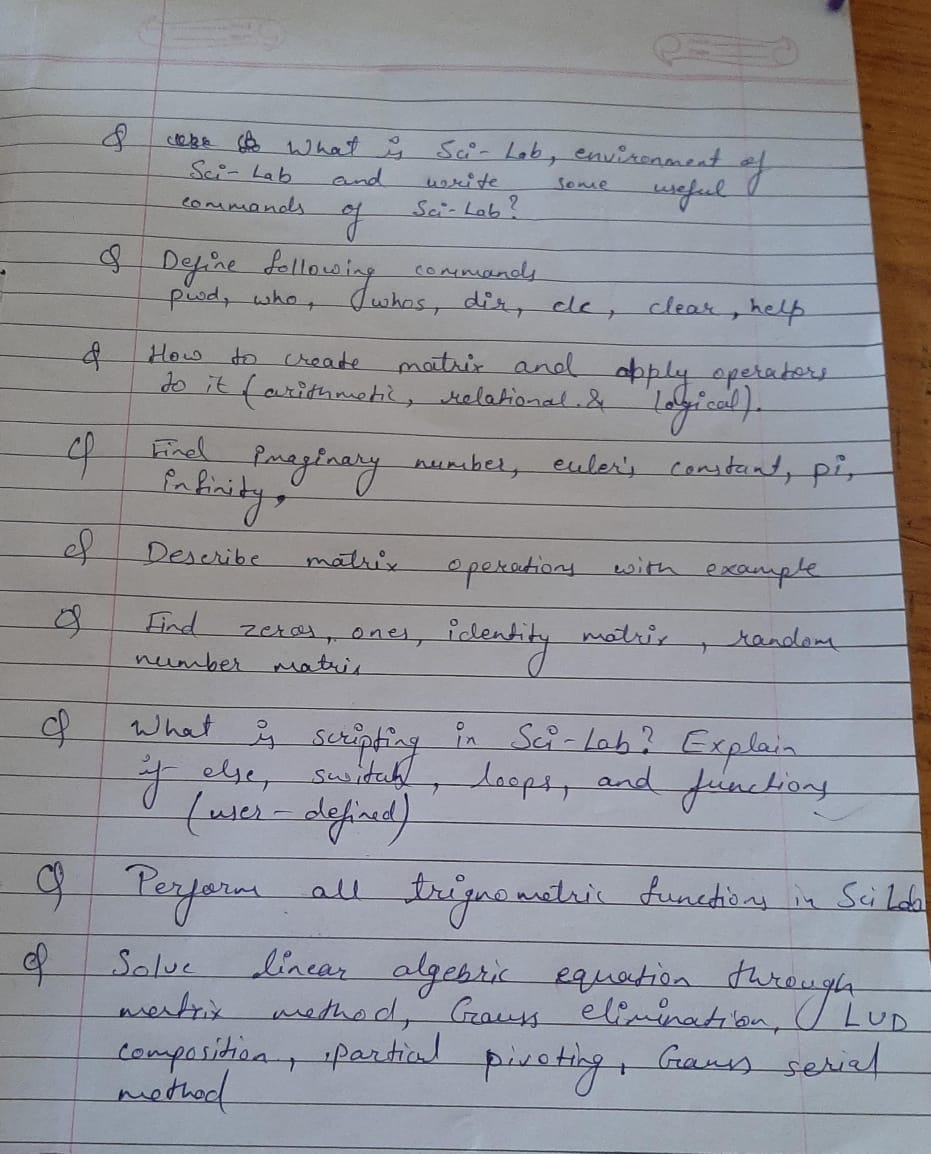 Q What is Sci-Lab, environment of
Sci-Lab and write some useful
commands of Sci-Lab?
Q Define following commands
pwd, who, whos, dir, clc, clear, help
Q How to create matrix and apply operators
to it (arithmetic, relational & logical).
Q Find imaginary number, euler's constant, pi,
infinity,
Q Describe matrix operations with example
Q Find zeros, ones, identity matrix, random
number matrix
Q What is scripting in Sci-Lab? Explain
if else, switch, loops, and functions
(user-defined)
Q Perform all trignometric functions in SciLab
Q Solve linear algebric equation through
matrix method, Gauss elimination, LUD
composition, partical pivoting, Gauss serial
method